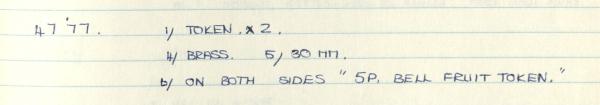 47'77. 1/ TOKEN. x 2.
4/ BRASS. 5/ 30 MM.
6/ ON BOTH SIDES " 5P. BELL FRUIT TOKEN."